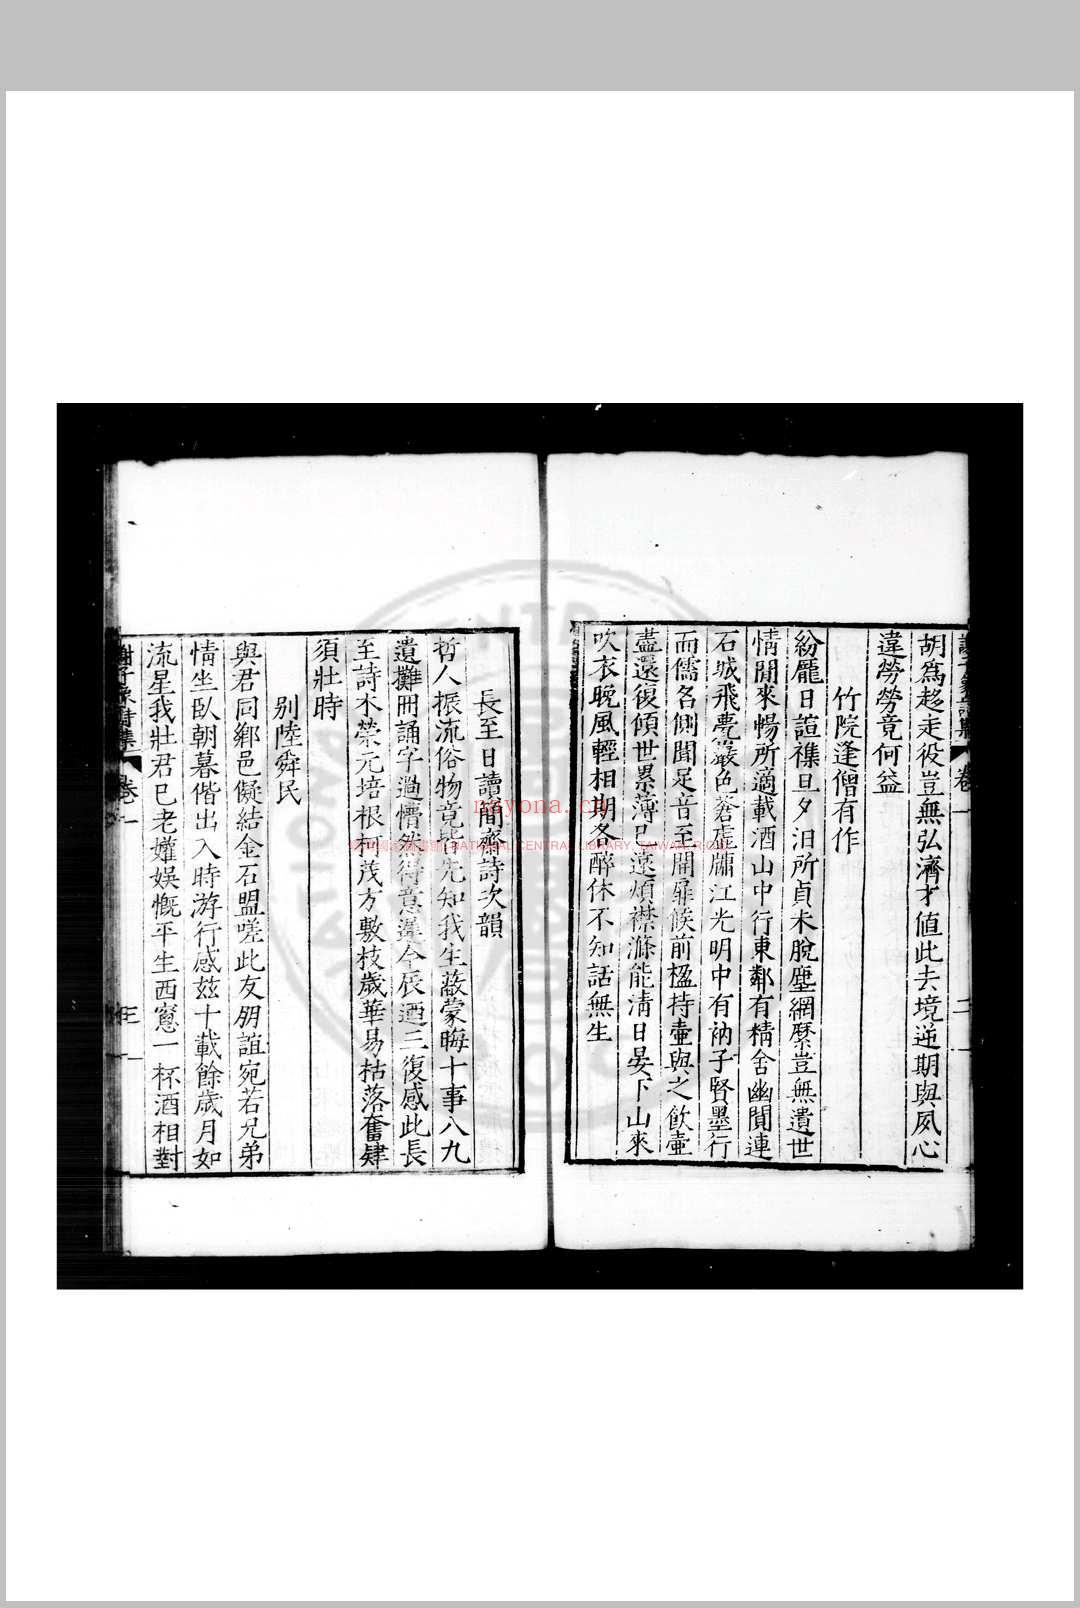 胡爲趍走役豈無弘濟才値此去境逆期與夙心
違勞勞竟何益
竹院逢僧有作
紛厖日諠襍旦夕汨所貞未脫塵網縻豈無遺世
情閒來暢所適載酒山中行東鄰有精舍幽閴連
石城飛甍巖色蒼虛牖江光明中有衲子賢墨行
而儒名側聞足音至開扉候前楹持壷與之飲壷
盡還復傾世累薄已遠煩襟滌能淸日晏下山來
吹衣晚風輕相期各醉休不知話無生
卷一
二
長至日讀簡齋詩次韻
哲人振流俗物竟皆先知我生蔽蒙晦十事八九
遺攤冊誦字過懵然得意遲今辰迺三復感此長
至詩木榮元培根柯茂方敷枝歲華易枯落奮肄
須壯時
别陸舜民
與君同鄕邑儗結金石盟嗟此友朋誼宛若兄弟
情坐臥朝暮偕出入時游行感玆十載餘歲月如
流星我壯君已老嬥娛慨平生西窻一杯酒相對
詩集
卷一
三
nayona.cn
NATIONAL CENTRAL LIBRARY, TAIWAN, R.O.C